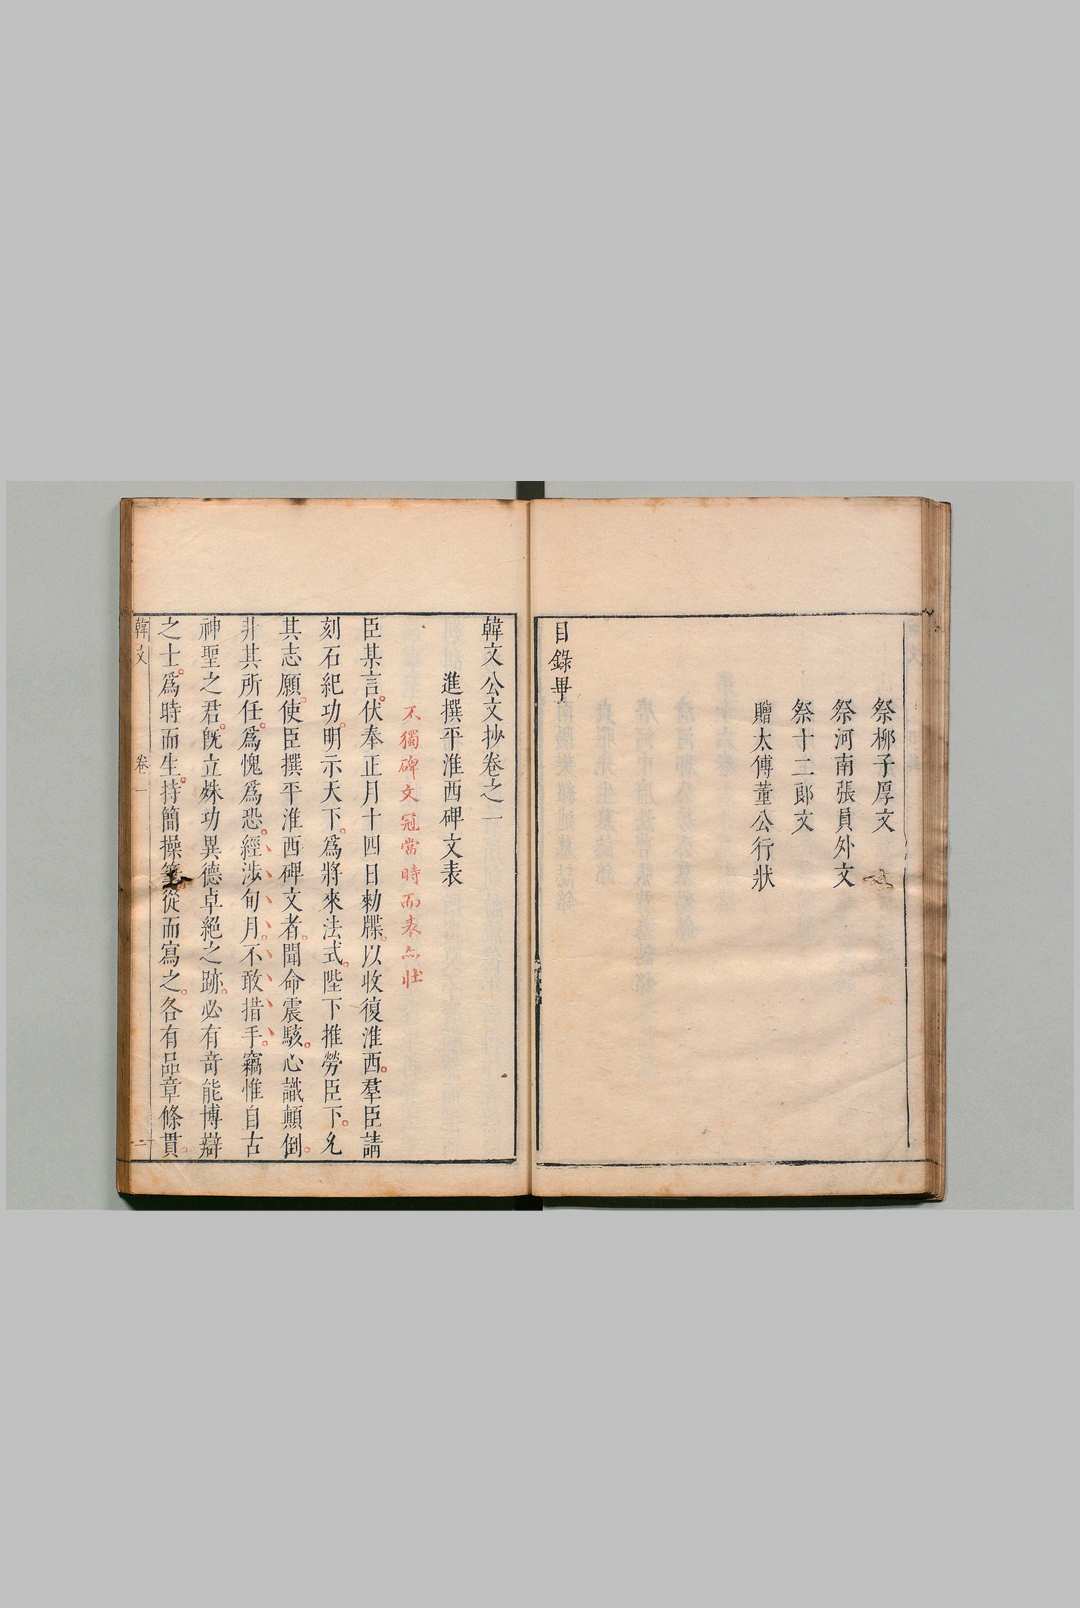 祭柳子厚文
祭河南張員外文
祭十二郎文
贈太傅董公行狀
目錄畢
韓文公文抄卷之一
進撰平淮西碑文表
不獨碑文冠當時而表亦壯
臣某言伏奉正月十四日勅牒以收復淮西羣臣請
刻石紀功明示天下爲將來法式陛下推勞臣下允
其志願使臣撰平淮西碑文者聞命震駭心識顛倒
非其所任爲愧爲恐經涉旬月不敢措手竊惟自古
神聖之君旣立殊功異德卓絕之跡必有奇能博辯
之士爲時而生持簡操筆從而寫之各有品章條貫
韓文 卷一 一